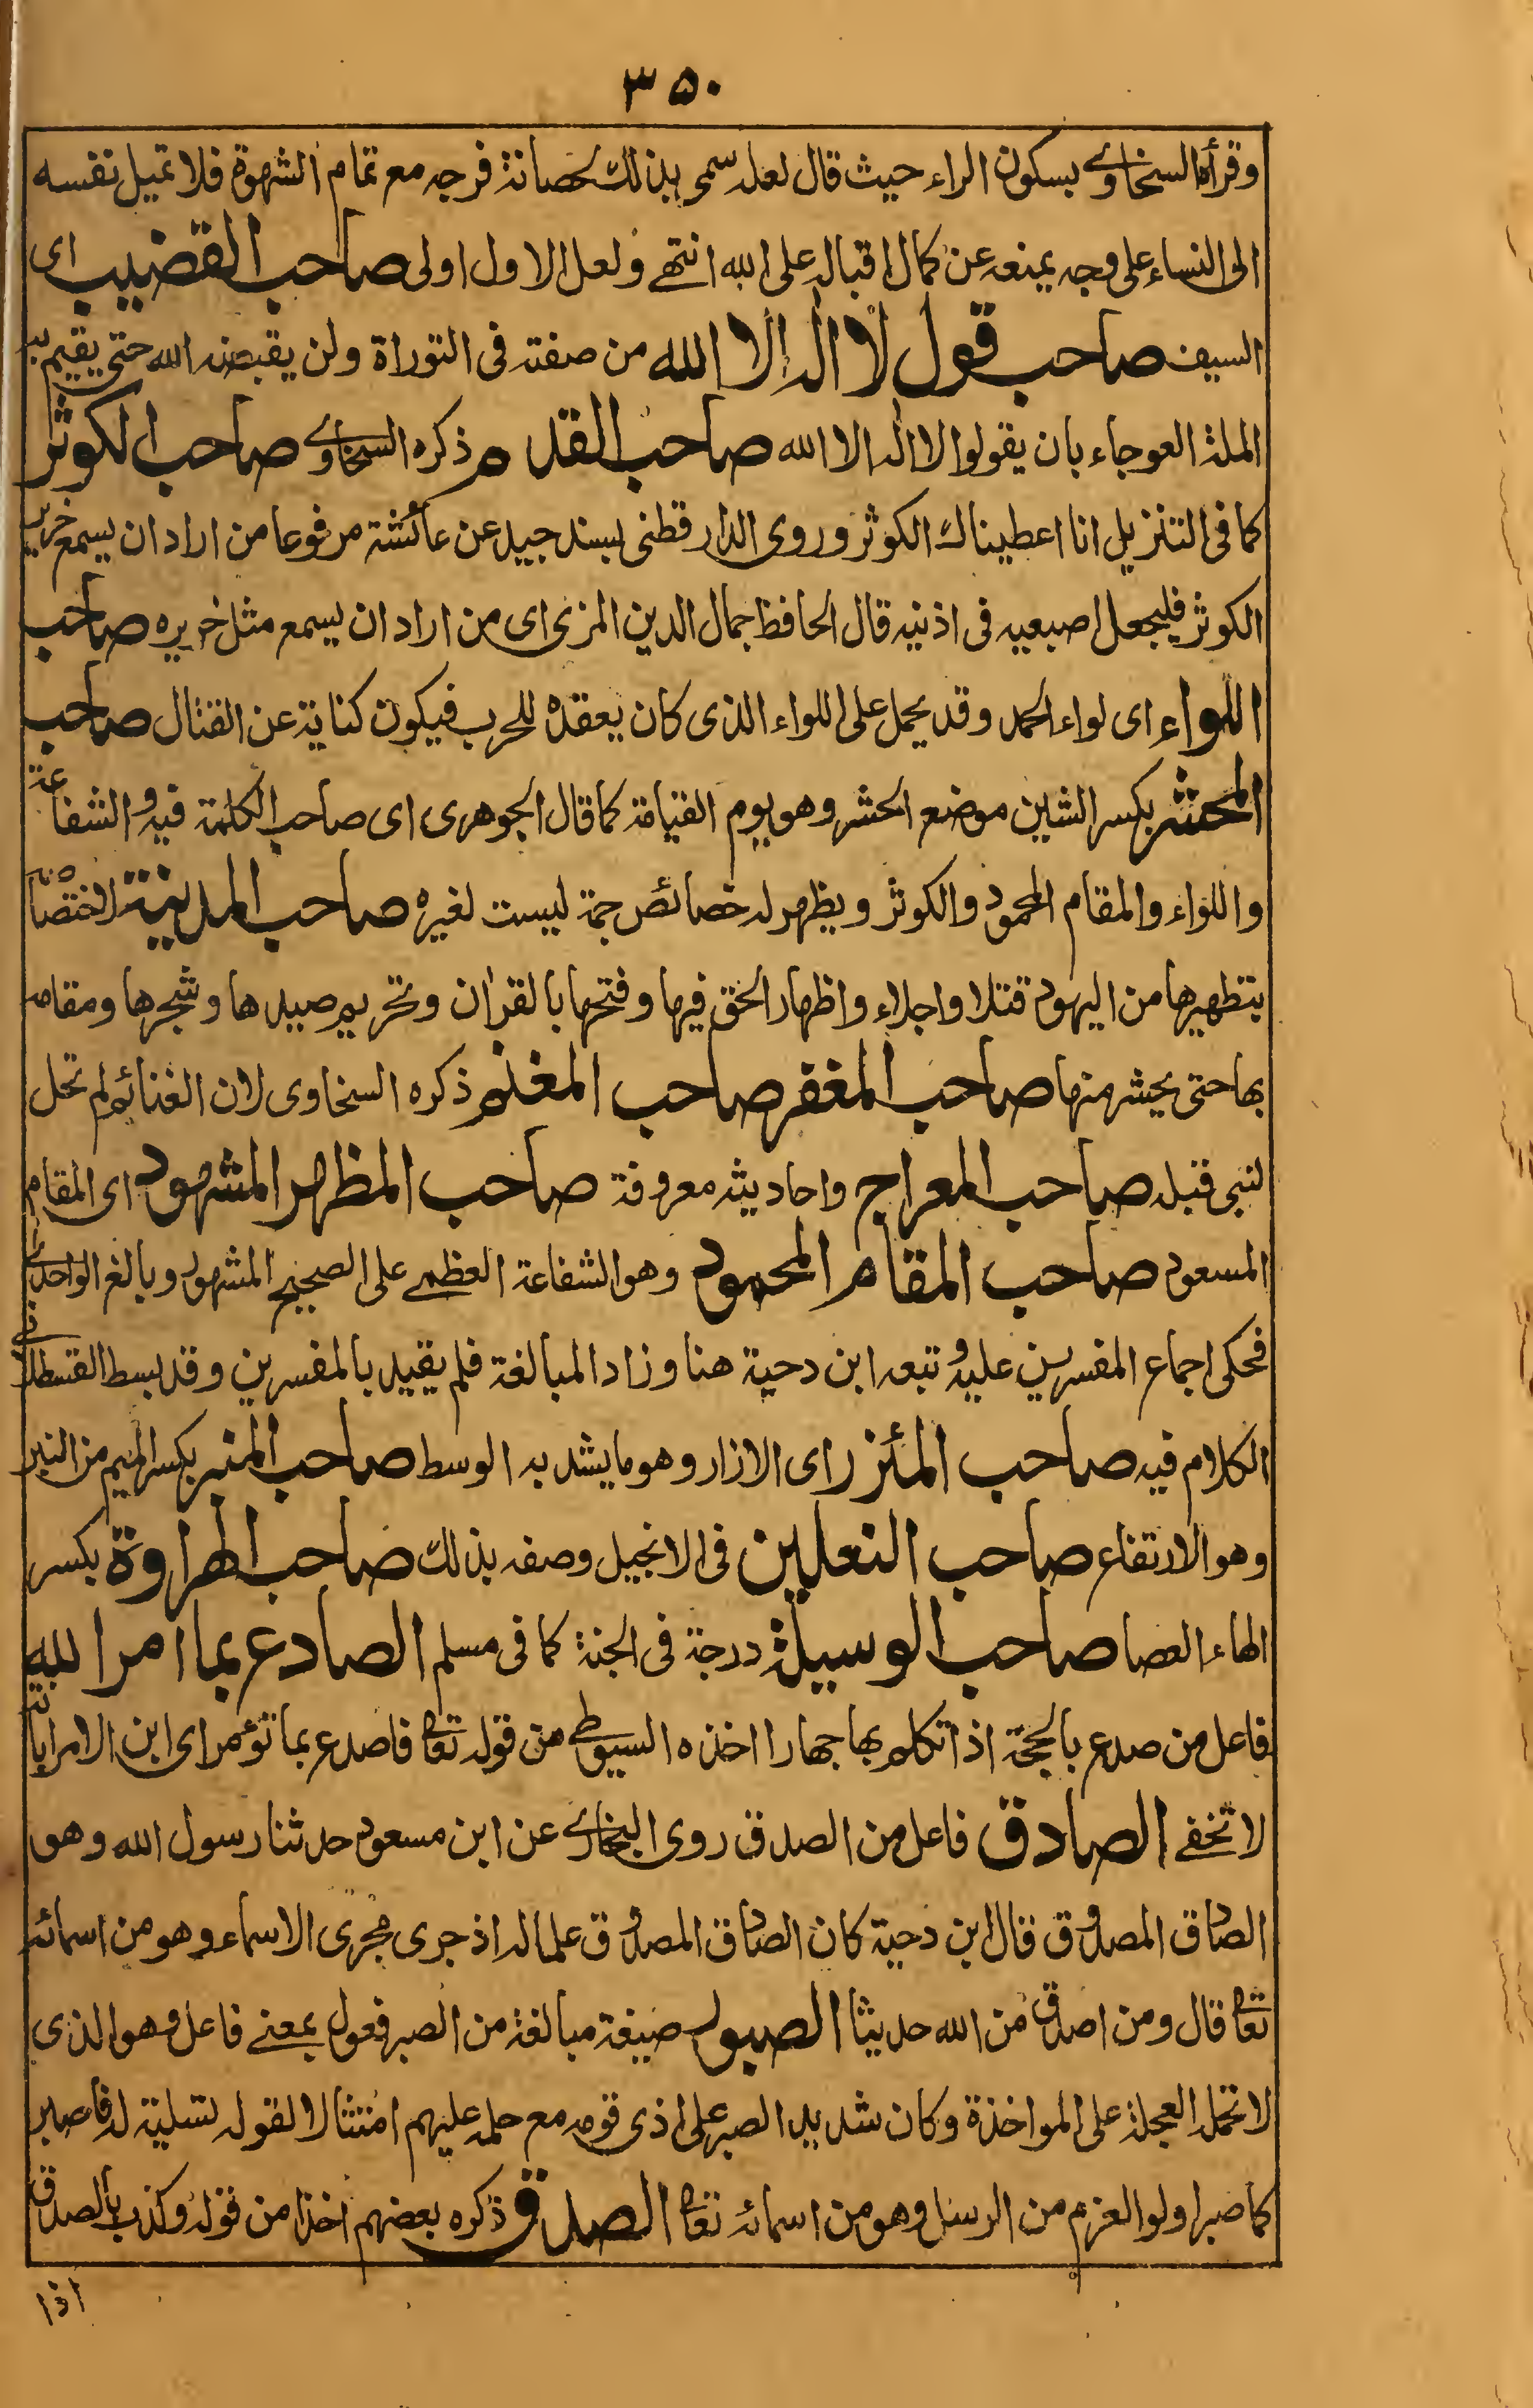 ٣٥٠
وقرأه السخاوى بسكون الراء حيث قال لعله سمى بذلك لحصانة فرجه مع تمام الشهوة فلا تميل نفسه
الى النساء على وجه يمنعه عن كمال اقباله على الله انتهى ولعل الاول اولى صاحب القضيب اى
السيف صاحب قول لا اله الا الله من صفته فى التوراة ولن يقبضه الله حتى يقيم به
الملة العوجاء بان يقولوا لا اله الا الله صاحب القدم ذكره السخاوى صاحب الكوثر
كما فى التنزيل انا اعطيناك الكوثر وروى الدارقطنى بسند جيد عن عائشة مرفوعا من اراد ان يسمع خرير
الكوثر فليجعل اصبعيه فى اذنيه قال الحافظ جمال الدين المزى اى من اراد ان يسمع مثل خريره صاحب
اللواء اى لواء الحمد وقد يحمل على اللواء الذى كان يعقده للحرب فيكون كناية عن القتال صاحب
المحشر بكسر الشين موضع الحشر وهو يوم القيامة كما قال الجوهرى اى صاحب الكلمة فيه والشفاعة
واللواء والمقام المحمود والكوثر ويظهر له خصائص جمة ليست لغيره صاحب المدينة لاختصاصه
بتطهيرها من اليهود قتلا واجلاء واظهار الحق فيها وفتحها بالقران وتحريم صيدها وشجرها ومقامه
بها حتى يحشر منها صاحب المغفر صاحب المغنم ذكره السخاوى لان الغنائم لم تحل
لنبى قبله صاحب المعراج واحاديثه معروفة صاحب المظهر المشهود اى المقام
المسعود صاحب المقام المحمود وهو الشفاعة العظمى على الصحيح المشهور وبالغ الواحدى
فحكى اجماع المفسرين عليه وتبعه ابن دحية هنا وزاد المبالغة فلم يقيد بالمفسرين وقد بسط القسطلانى
الكلام فيه صاحب المئزر اى الازار وهو ما يشد به الوسط صاحب المنبر بكسر الميم من النبر
وهو الارتفاع صاحب النعلين فى الانجيل وصفه بذلك صاحب الهراوة بكسر
الهاء العصا صاحب الوسيلة درجة فى الجنة كما فى مسلم الصادع بما امر الله
فاعل من صدع بالحجة اذا تكلم بها جهارا اخذه السيوطى من قوله تعا فاصدع بما تؤمر اى ابن الامر ابانة
لا تخفى الصادق فاعل من الصدق روى البخارى عن ابن مسعود حدثنا رسول الله وهو
الصادق المصدوق قال ابن دحية كان الصادق المصدوق علما له اذ جرى مجرى الاسماء وهو من اسمائه
تعا قال ومن اصدق من الله حديثا الصبور صيغة مبالغة من الصبر فعول بمعنى فاعل وهو الذى
لا تحمله العجلة على المواخذة وكان شديد الصبر على اذى قومه مع حمله عليهم امتثالا لقوله تسلية له فاصبر
كما صبر اولوا العزم من الرسل وهو من اسمائه تعا الصدق ذكره بعضهم اخذا من قوله وكذب بالصدق
اذا